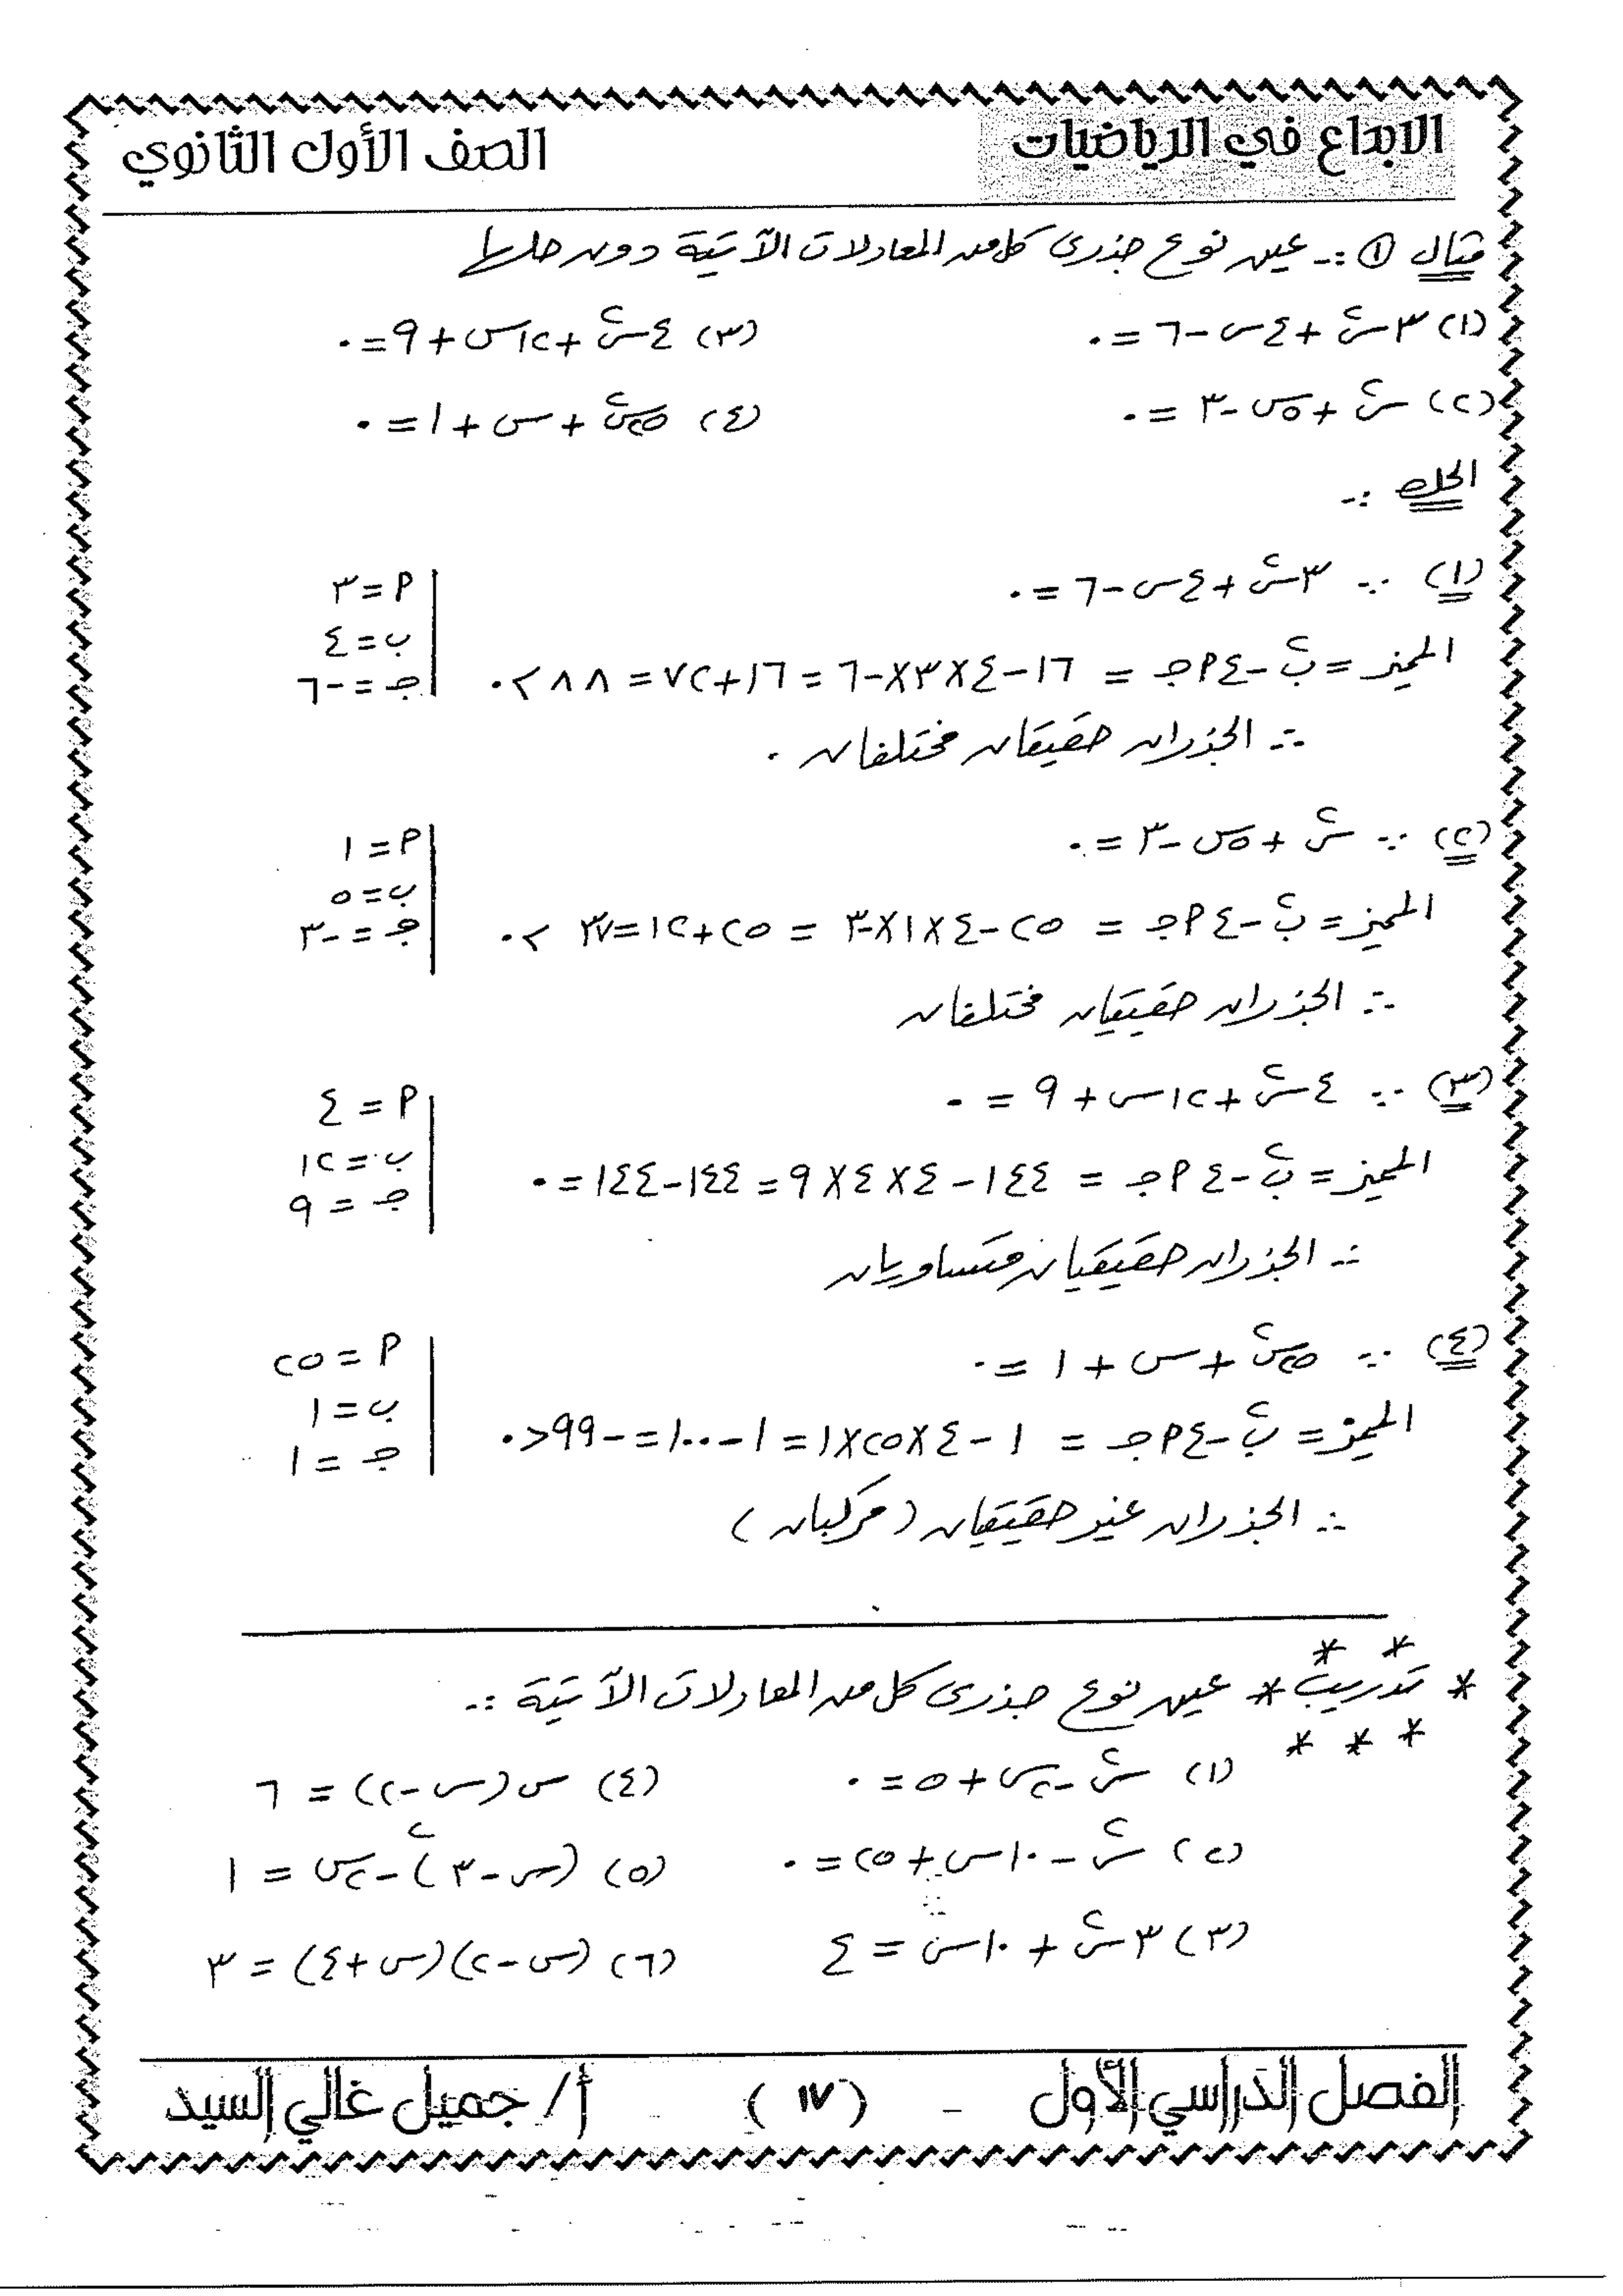 الابداع في الرياضيات
الصف الأول الثانوي
مثال ① :- عين نوع جذرى كل من المعادلات الآتية دون حلها
(١) ٣س٢ + ٤س - ٦ = ٠
(٣) ٤س٢ + ١٢س + ٩ = ٠
(٢) س٢ + ٥س - ٣ = ٠
(٤) ٢٥س٢ + س + ١ = ٠
الحل :-
(١) ∵ ٣س٢ + ٤س - ٦ = ٠
المميز = ب٢ - ٤أجـ = ١٦ - ٤×٣×-٦ = ١٦ + ٧٢ = ٨٨ > ٠
أ = ٣
ب = ٤
جـ = -٦
∴ الجذران حقيقان مختلفان .
(٢) ∵ س٢ + ٥س - ٣ = ٠
المميز = ب٢ - ٤أجـ = ٢٥ - ٤×١×-٣ = ٢٥ + ١٢ = ٣٧ > ٠
أ = ١
ب = ٥
جـ = -٣
∴ الجذران حقيقيان مختلفان
(٣) ∵ ٤س٢ + ١٢س + ٩ = ٠
المميز = ب٢ - ٤أجـ = ١٤٤ - ٤×٤×٩ = ١٤٤ - ١٤٤ = ٠
أ = ٤
ب = ١٢
جـ = ٩
∴ الجذران حقيقيان متساويان
(٤) ∵ ٢٥س٢ + س + ١ = ٠
المميز = ب٢ - ٤أجـ = ١ - ٤×٢٥×١ = ١ - ١٠٠ = -٩٩ < ٠
أ = ٢٥
ب = ١
جـ = ١
∴ الجذران غير حقيقيان (مركبان)
* تدريب * عين نوع جذرى كل من المعادلات الآتية :-
(١) س٢ - ٢س + ٥ = ٠
(٤) س(س - ٢) = ٦
(٢) س٢ - ١٠س + ٢٥ = ٠
(٥) (س - ٣)٢ - ٢س = ١
(٣) ٣س٢ + ١٠س = ٤
(٦) (س - ٢)(س + ٤) = ٣
الفصل الدراسي الأول - (١٧) أ/ جميل غالي السيد